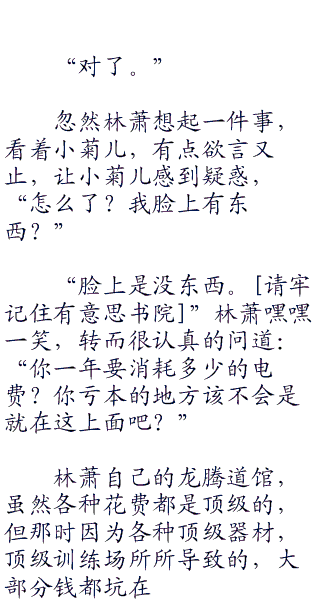 “对了。”
忽然林萧想起一件事，
看着小菊儿，有点欲言又
止，让小菊儿感到疑惑，
“怎么了？我脸上有东
西？”
“脸上是没东西。[请牢
记住有意思书院]”林萧嘿嘿
一笑，转而很认真的问道：
“你一年要消耗多少的电
费？你亏本的地方该不会是
就在这上面吧？”
林萧自己的龙腾道馆，
虽然各种花费都是顶级的，
但那时因为各种顶级器材，
顶级训练场所所导致的，大
部分钱都坑在